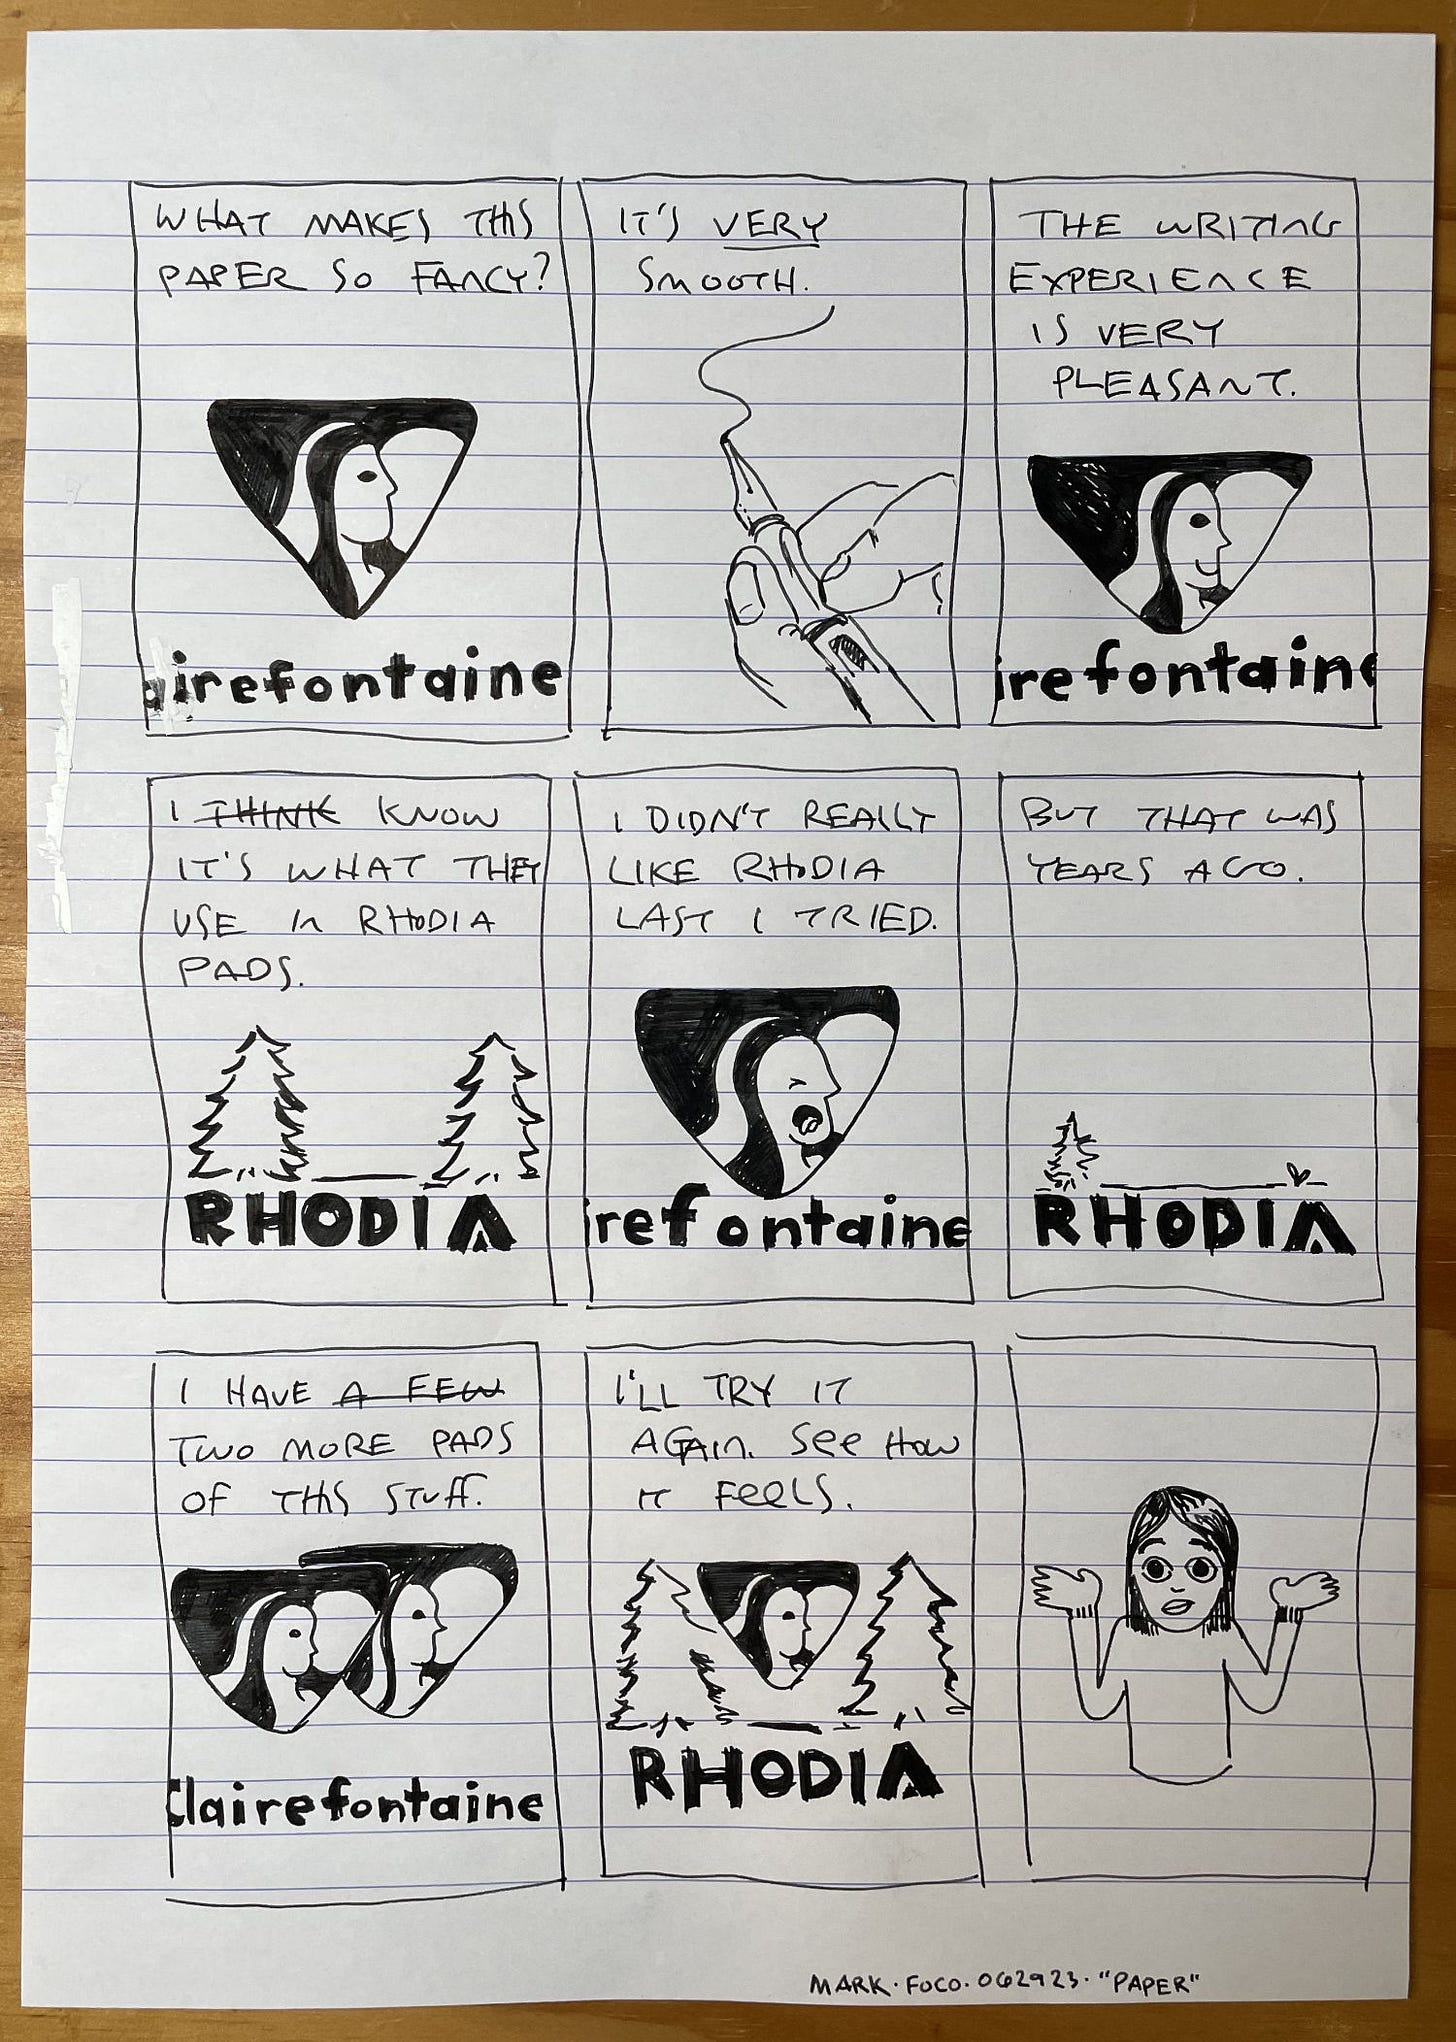 WHAT MAKES THIS
PAPER SO FANCY?
airefontaine
IT'S VERY
SMOOTH.
THE WRITING
EXPERIENCE
IS VERY
PLEASANT.
irefontaine
I THINK KNOW
IT'S WHAT THEY
USE IN RHODIA
PADS.
RHODIA
I DIDN'T REALLY
LIKE RHODIA
LAST I TRIED.
irefontaine
BUT THAT WAS
YEARS AGO.
RHODIA
I HAVE A FEW
TWO MORE PADS
OF THIS STUFF.
Clairefontaine
I'LL TRY IT
AGAIN. SEE HOW
IT FEELS.
RHODIA
MARK·FOCO·062923·"PAPER"